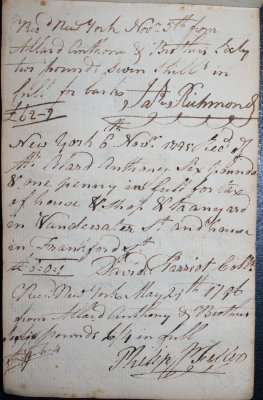 Rec'd New York Nov'r 5th from
Allard Anthony & Brother Sixty
two pounds Seven Shill's in
full for barks
£62-7 Ja's Richmond
New York 6th Nov'r 1785 Rec'd of
Mr Allard Anthony Six pounds
& one penny in full for tax
of house & Shop & tanyard
in Vandewater St and house
in Frankford St
£6:0:1 David Coll'r
Rec'd New York May 29th 1786
from Allard Anthony & Brother
pounds 6/4 in full
6:4
Philip